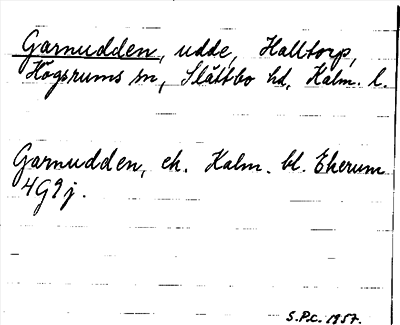 Garnudden, udde, Halltorp,
Högsrums sn, Slättbo hd, Kalm. l.
Garnudden, ek. Kalm. bl. Ekerum
4G9j.
S.P.C. 1957.